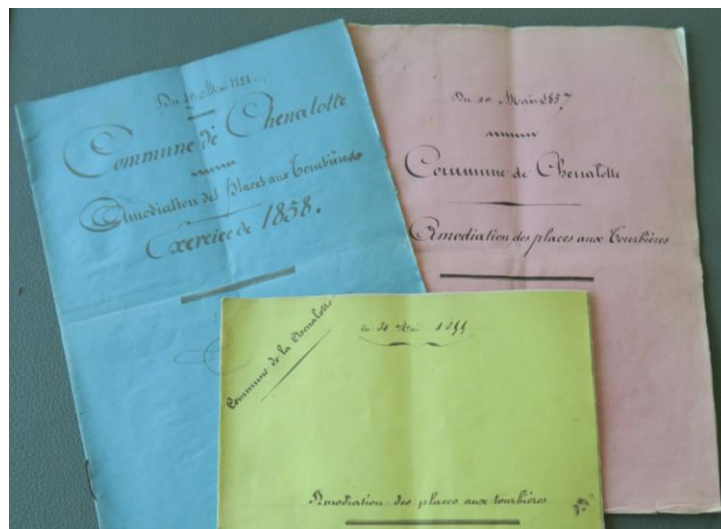 Du 30 Mai 1858.
Commune de Chenalotte
Amodiation des Places aux Tourbières
Exercice de 1858.
Du 20 Mai 1857
Commune de Chenalotte
Amodiation des places aux Tourbières
Commune de la Chenalotte
du 30 Mai
Amodiation des places aux tourbières